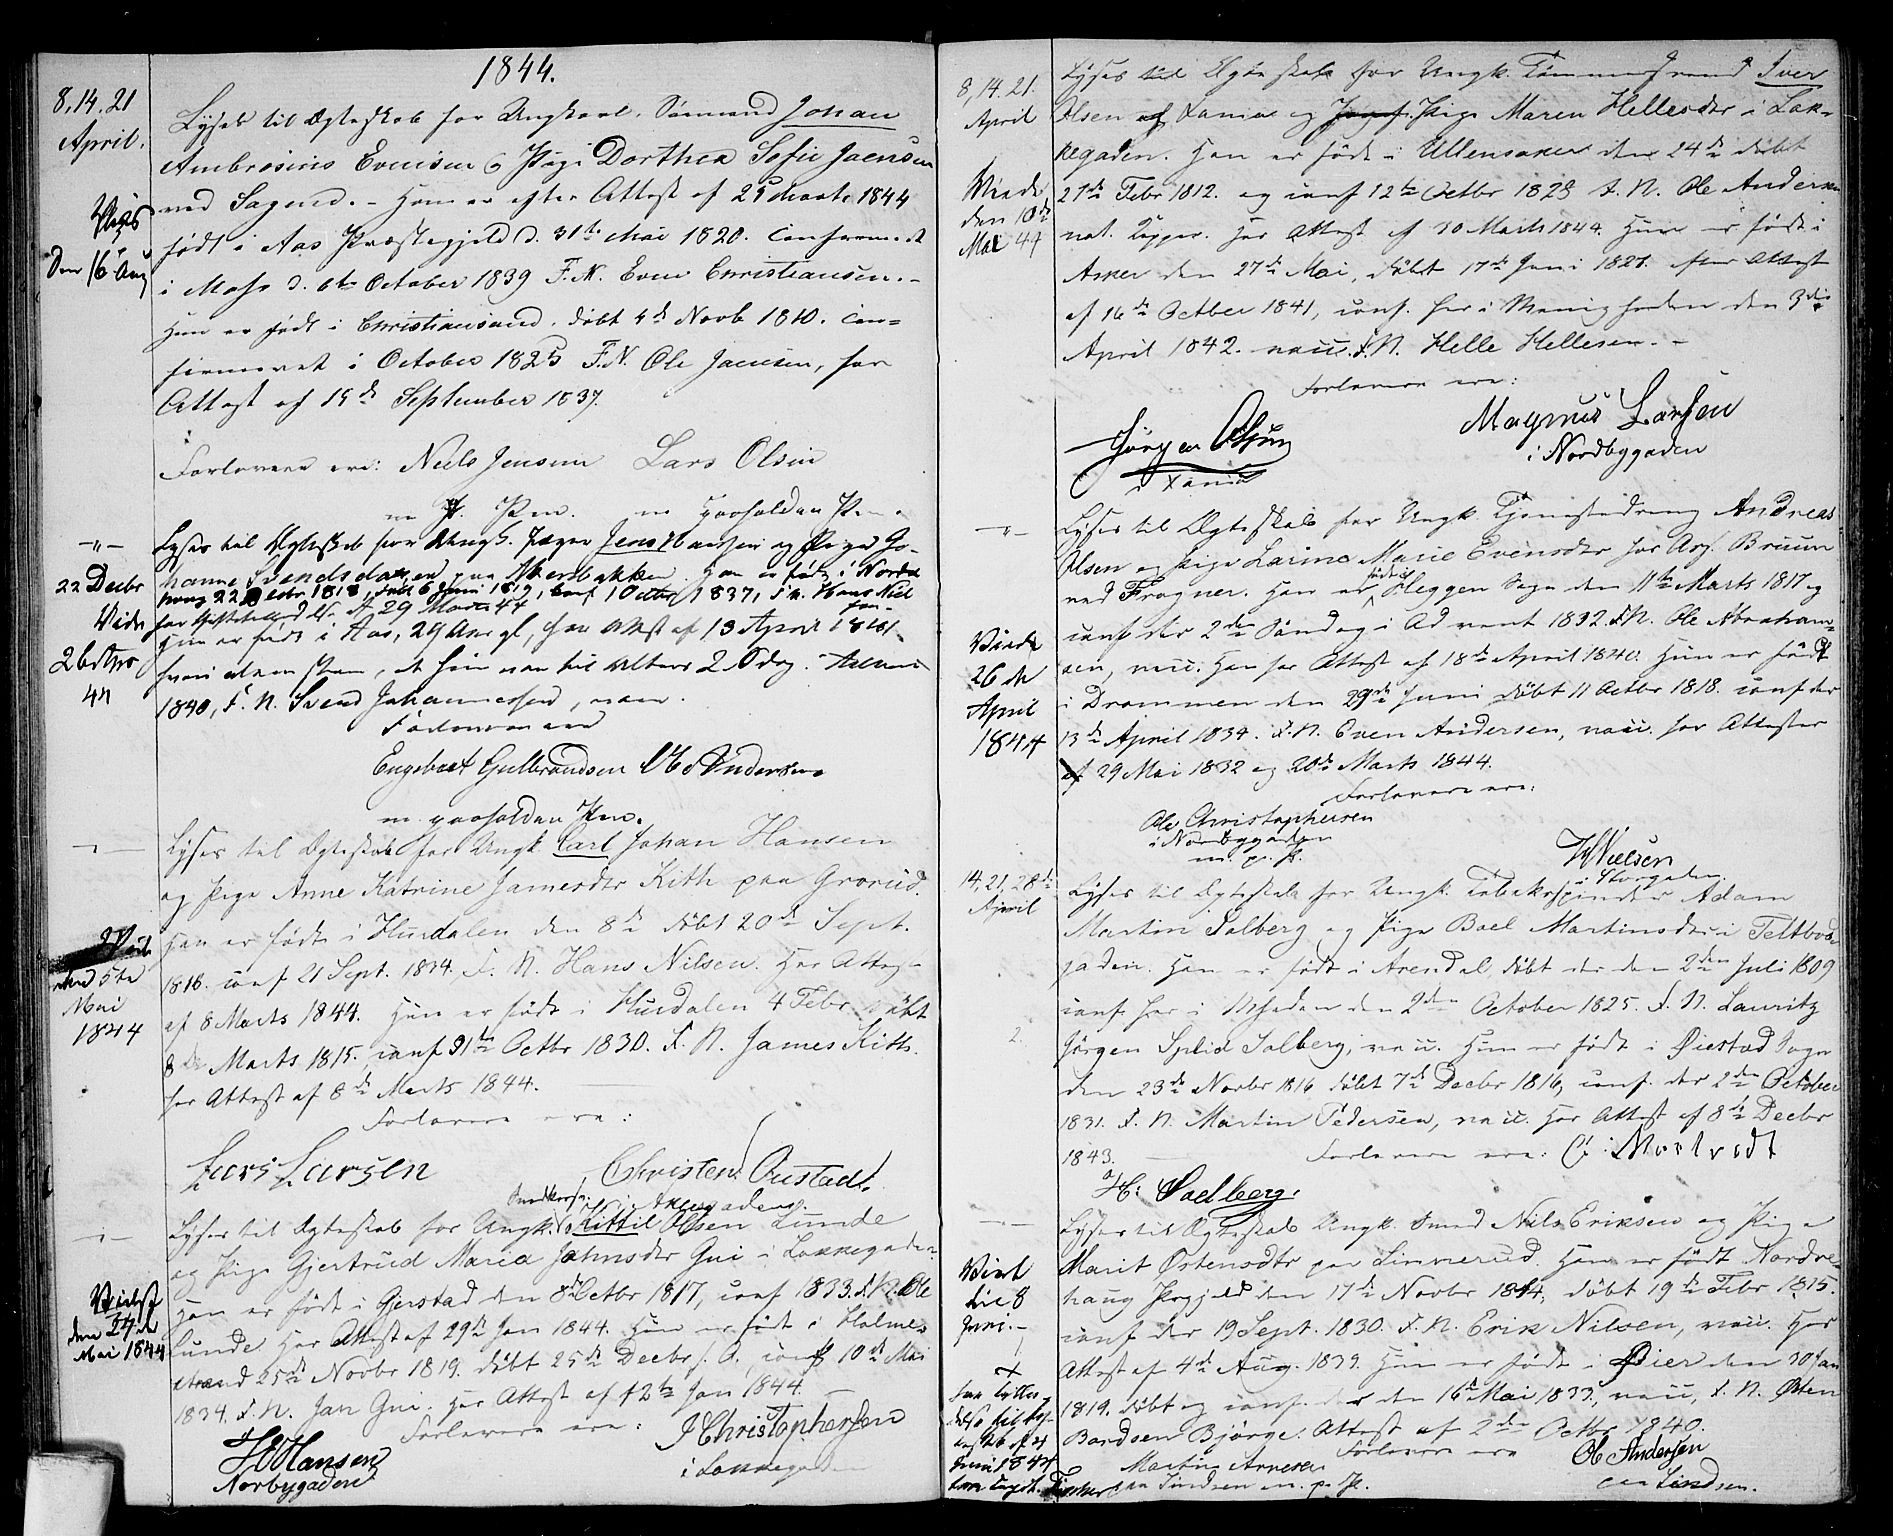 1844.
8, 14. 21
April.
Lyses til Ægteskab for Ungkarl, Sømand Johan
Ambrosius Evensen og Pige Dorthea Sofie Jaensen
ved Sagene. Han er efter Attest af 25 Marts 1844
født i Aas Præstegjeld d. 31te Mai 1820. Confirmeret
i Moss d. 6te October 1839 F. N. Even Christiansen. -
Hun er født i Christiansand, døbt 4de Novb 1810. Con=
firmeret i October 1825 F. N. Ole Jaensen, har
Attest af 19de September 1837.
Viet
den 16 Aug
Forlovere ere: Niels Jensen Lars Olsen
m paaholden Pen.
- " -
Lyses til Ægteskab for Ungk. Jens Hansen og Pige Jo-
hanne Svendsdatter paa Akersbakken. Han er født i Nordre
22 Decbr 1818, døbt 6 Juni 1819, conf 1 Octbr 1837, F. N. Hans Niel
sen Attest 29 Marts 44
Hun er født i Aas, 29 Aar gl, har Attest af 13 April 1841
at hun var til Alters 20 dag.
1840, F. N. Svend Johannessen,
Forloverne ere
Engebret Gulbrandsen Ole Andersen
m. paaholden Pen.
22 Decbr
Viede
44
Lyses til Ægteskab for Ungk Carl Johan Hansen
og Pige Anne Katrine Jamesdtr Kith paa Grorud.
Han er født i Hurdalen den 8de døbt 20de Sept.
1818. conf 21 Sept. 1834. F. N. Hans Nilsen. Har Attest
af 8 Marts 1844. Hun er født i Hurdalen 4 Febr, døbt
8de Marts 1815, conf 31te Octbr 1830. F. N. James Kith.
har Attest af 8de Marts 1844.
Viede
den 5te
Mai
1844
Forlovere ere:
Lars Larsen Christen Oustad.
i Akersgaden.
Lyses til Ægteskab for Ungk. Kittil Olsen Lunde
og Pige Gjertrud Maria Jahnsdtr Gui i Lakkegaden.
Han er født i Gjerstad den 8de Octbr 1817, conf 1833. F. N. Ole
Lunde Har Attest af 29de Jan 1844. Hun er født i Holme-
strand 25de Novbr 1819. døbt 25de Decbr s. A., conf 10de Mai
1834. F. N. Jan Gui. Har Attest af 12te Jan 1844.
Viet
den 27de
Mai 1844
Forlovere ere:
H Hansen J Christophersen
Norbygaden i Lakkegaden
8, 14. 21.
April
Lyses til Ægteskab for Ungk. Tømmermand Iver
Olsen af Xania og Pige Maren Hellesdtr i Lak-
kegaden. Han er født i Ullensaker den 24de døbt
27de Febr 1812. og conf 12te Octbr 1828 F. N. Ole Andersen
nat. Kopper. Har Attest af 30 Marts 1844. Hun er født i
Asker den 27de Mai, døbt 17de Juni 1821. efter Attest
af 16de October 1841, conf. her i Menigheden den 3die
April 1842. vacc. F. N. Helle Hellesen. -
Viede
den 10de
Mai 44
Forlovere ere:
Jörgen Olsen Magnus Larsen
i Xania i Nordbygaden
- " -
Lyses til Ægteskab for Ungk. Tjenestedreng Andreas
Olsen og Pige Larine Marie Evensdtr hos Ass. Bruun
ved Frogner. Han er født i Heggen Sogn den 11te Marts 1817 og
conf der 2den Søndag i Advent 1832. F. N. Ole Abraham-
sen, vacc. Han har Attest af 18de April 1840. Hun er født
i Drammen den 29de Juni døbt 11 Octbr 1818. conf der
13de April 1834. F. N. Even Andersen, vacc. har Attester
af 29 Mai 1832 og 20de Marts 1844.
Viede
26de
April
1844
Forlovere ere:
Ole Christophersen
i Nordbygaden
m. p. P.
H Nielsen
i Storgaden.
14, 21, 28de
April
Lyses til Ægteskab for Ungk. Tobakspinder Adam
Martin Solberg og Pige Boel Martinsdtr i Teltbod-
gaden. Han er født i Arendal, døbt der den 2den Juli 1809
conf. her i Mheden den 2den October 1825. F. N. Lauritz
Jörgen Splid Solberg, vacc. Hun er født i Øiestad Sogn
den 23de Novbr 1816 døbt 7de Decbr 1816, conf. der 2den October
1831. F. N. Martin Pedersen, vacc. Har Attest af 8de Decbr
1843.
2.
Forlovere ere: C: Mostvedt
H: Soelberg.
Lyses til Ægteskab Ungk. Smed Nils Eriksen og Pige
Marit Østensdtr paa Linnerud. Han er født Nordre-
haug Prgjeld den 17de Novbr 1814, døbt 19de Febr 1815.
conf der 19 Sept. 1830. F. N. Erik Nilsen, vacc. Har
Attest af 4de Aug. 1839. Hun er født i Øier den 30 Jan
1819. døbt og conf. der den 16de Mai 1833, vacc, F. N. Østen
Bardsen Bjørge. Attest af 2den Octbr 1840.
Viet
die 8
Juni. -
+
Juni 1844
Forlovere ere
Martin Arnesen Ole Andersen
paa Lindsen m. p. P. paa Lindsen.